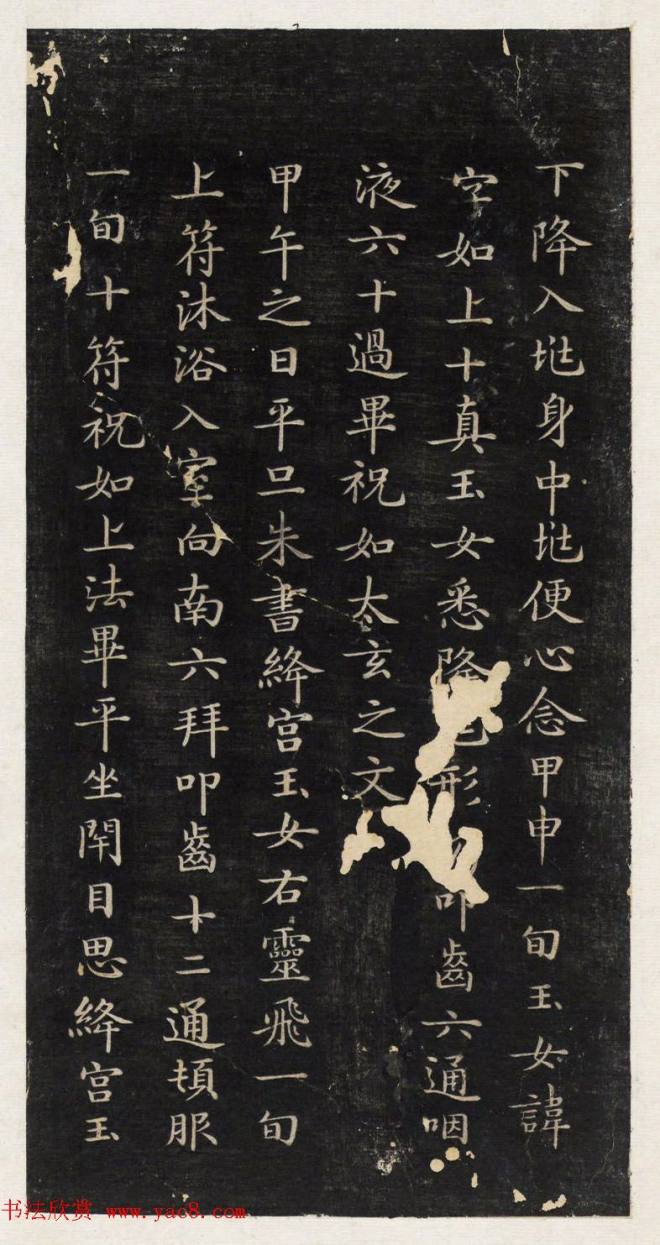 下降入㘴身中㘴便心念甲申一旬玉女諱
字如上十真玉女悉降形叩齒六通咽
液六十過畢祝如太玄之文
甲午之日平旦朱書絳宮玉女右靈飛一旬
上符沐浴入室向南六拜叩齒十二通頓服
一旬十符祝如上法畢平坐閇目思絳宮玉
书法欣赏 www.yac8.com